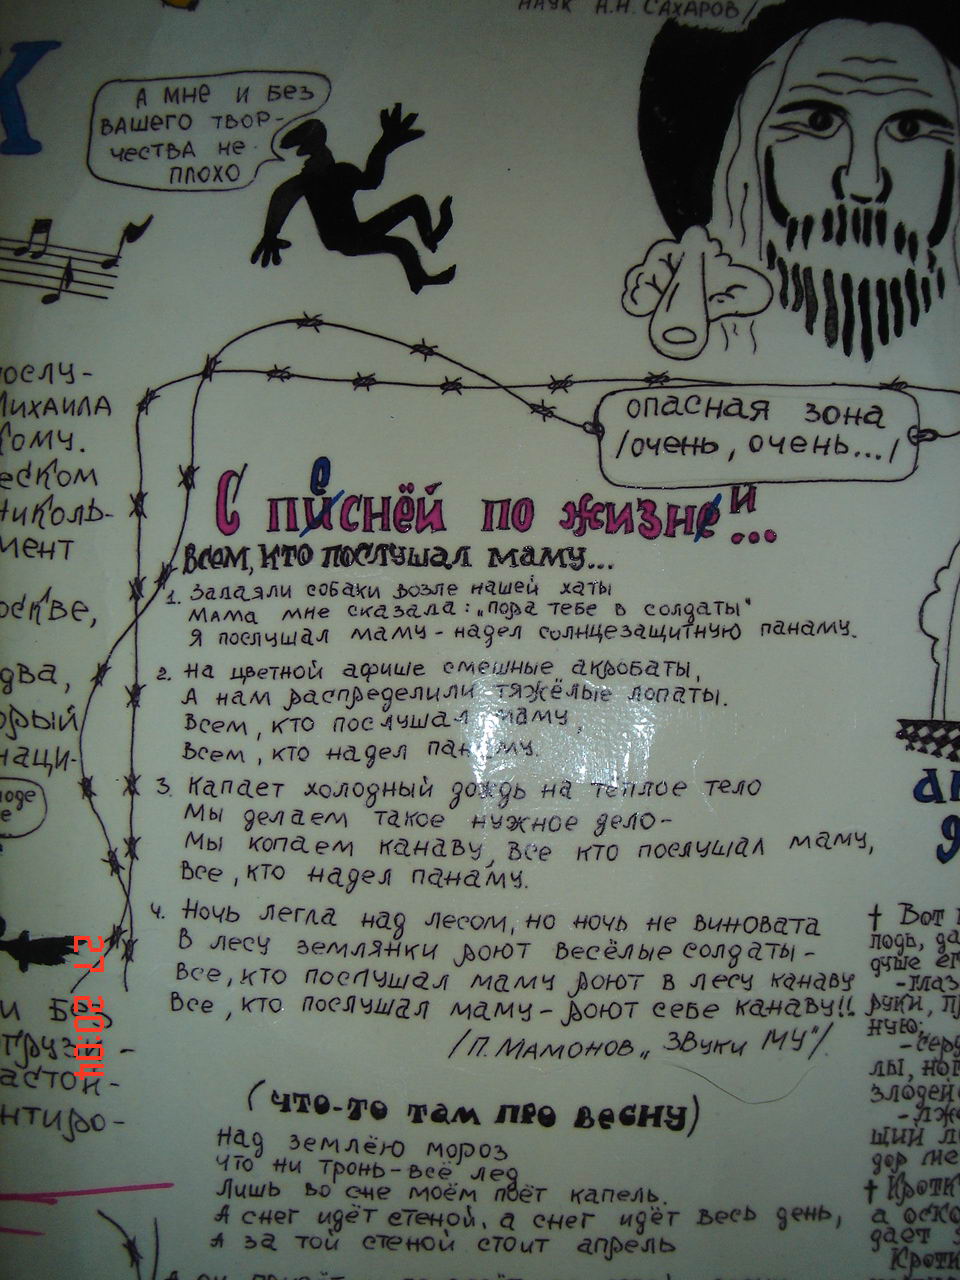 НАУК А.Н. САХАРОВ/
К
А МНЕ И БЕЗ
ВАШЕГО ТВОР-
ЧЕСТВА НЕ
ПЛОХО
ОПАСНАЯ ЗОНА
/ОЧЕНЬ, ОЧЕНЬ.../
ПОСЛУ-
МИХАИЛА
КОМУ.
ЕСКОМ
НИКОЛЬ-
МЕНТ
ОСКВЕ,
ДВА,
ОРЫЙ
НАЦИ-
С песнёй по жизни...
Всем, кто послушал маму...
1. Залаяли собаки возле нашей хаты
Мама мне сказала: „пора тебе в солдаты"
Я послушал маму - надел солнцезащитную панаму.
2. На цветной афише смешные акробаты,
А нам распределили тяжёлые лопаты.
Всем, кто послушал маму,
Всем, кто надел панаму.
3. Капает холодный дождь на тёплое тело
Мы делаем такое нужное дело-
Мы копаем канаву, все кто послушал маму,
Все, кто надел панаму.
4. Ночь легла над лесом, но ночь не виновата
В лесу землянки роют весёлые солдаты-
Все, кто послушал маму роют в лесу канаву
Все, кто послушал маму- роют себе канаву!!
/П. Мамонов „Звуки МУ"/
(что-то там про весну)
Над землёю мороз
Что ни тронь- всё лед
Лишь во сне моём поёт капель.
А снег идёт стеной, а снег идёт весь день,
А за той стеной стоит апрель
27 2004
† Вот
-глаз
руки, п
ную;
лы, ног
злодей
-лже
щий л
† Кроти
дает
Кроти